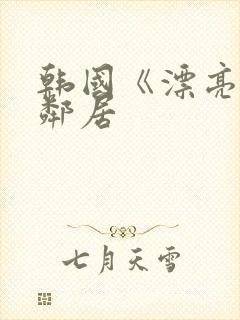 韩国《漂亮
邻居
七月天雪